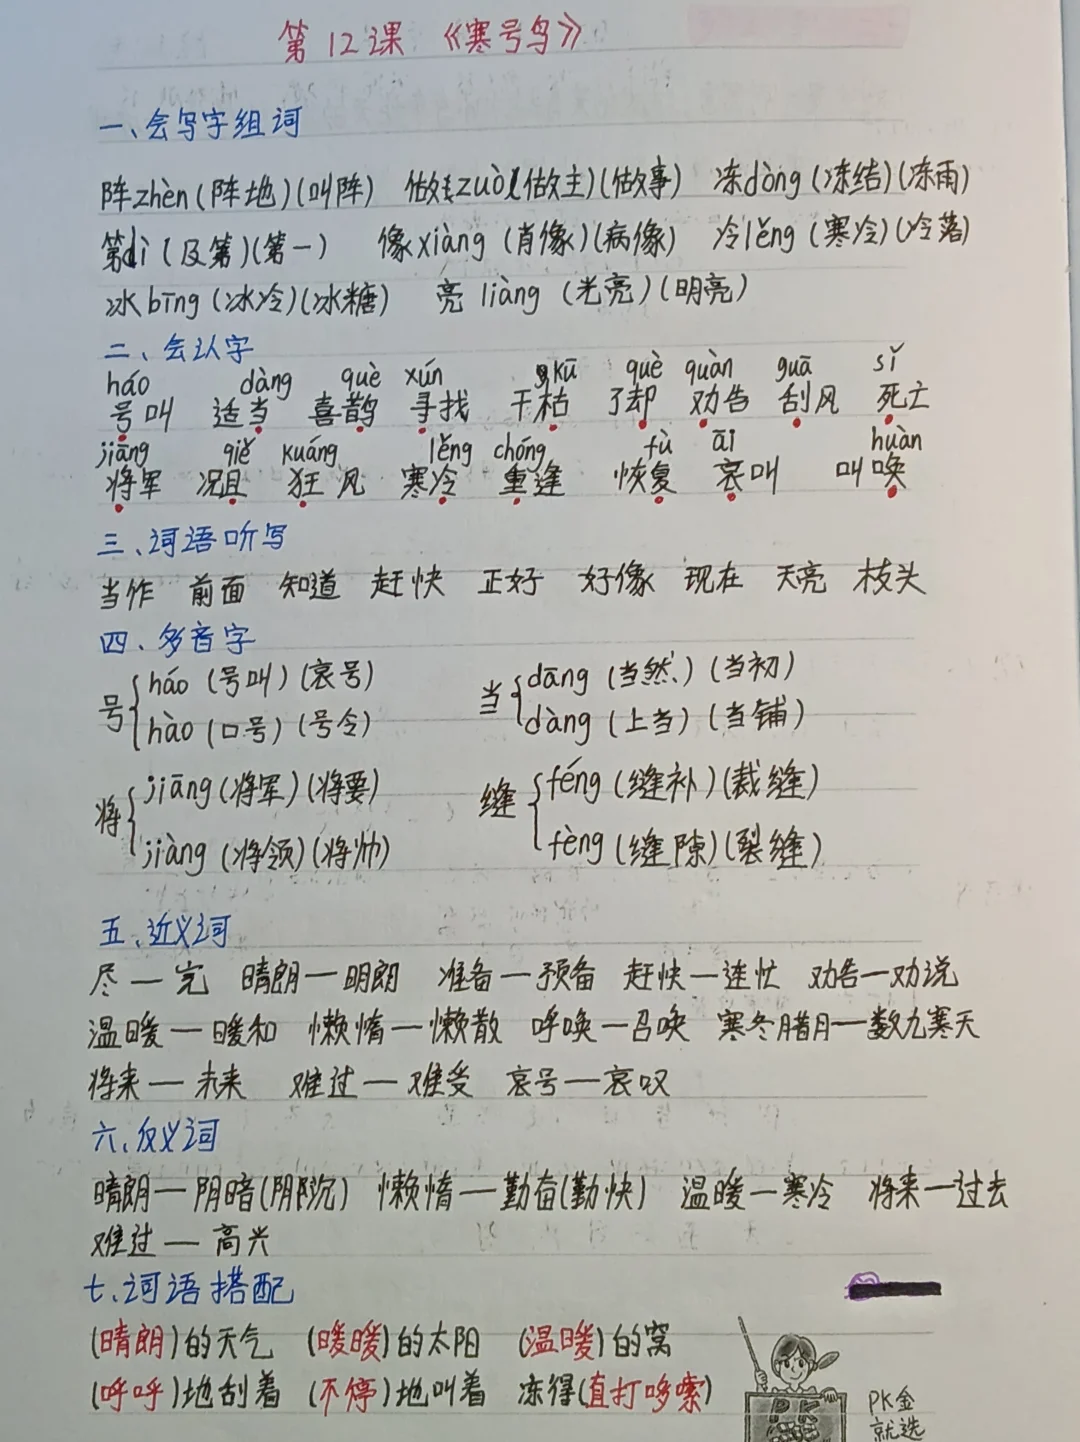 第12课 《寒号鸟》
一、会写字组词
阵zhèn(阵地)(叫阵) 做zuò(做主)(做事) 冻dòng(冻结)(冻雨)
第dì(及第)(第一) 像xiàng(肖像)(病像) 冷lěng(寒冷)(冷落)
冰bīng(冰冷)(冰糖) 亮liàng(光亮)(明亮)
二、会认字
háo dàng què xún kū què quàn guā sǐ
号叫 适当 喜鹊 寻找 干枯 了却 劝告 刮风 死亡
jiāng qiě kuáng lěng chóng fù āi huàn
将军 况且 狂风 寒冷 重逢 恢复 哀叫 叫唤
三、词语听写
当作 前面 知道 赶快 正好 好像 现在 天亮 枝头
四、多音字
号{háo(号叫)(哀号) 当{dāng(当然)(当初)
hào(口号)(号令) dàng(上当)(当铺)
将{jiāng(将军)(将要) 缝{féng(缝补)(裁缝)
jiàng(将领)(将帅) fèng(缝隙)(裂缝)
五、近义词
尽—完 晴朗—明朗 准备—预备 赶快—连忙 劝告—劝说
温暖—暖和 懒惰—懒散 呼唤—召唤 寒冬腊月—数九寒天
将来—未来 难过—难受 哀号—哀叹
六、反义词
晴朗—阴暗(阴沉) 懒惰—勤奋(勤快) 温暖—寒冷 将来—过去
难过—高兴
七、词语搭配
(晴朗)的天气 (暖暖)的太阳 (温暖)的窝
(呼呼)地刮着 (不停)地叫着 冻得(直打哆嗦)
PK金
就选